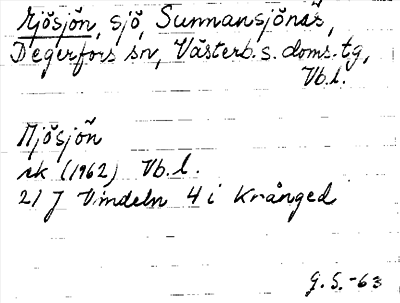 Mjösjön, sjö, Sunnansjönäs,
Degerfors sn, Västerb. s. doms. tg,
Vb. l.
Mjösjön
rk (1962) Vb. l.
21 J Vindeln 4 i Krånged
G. S. -63